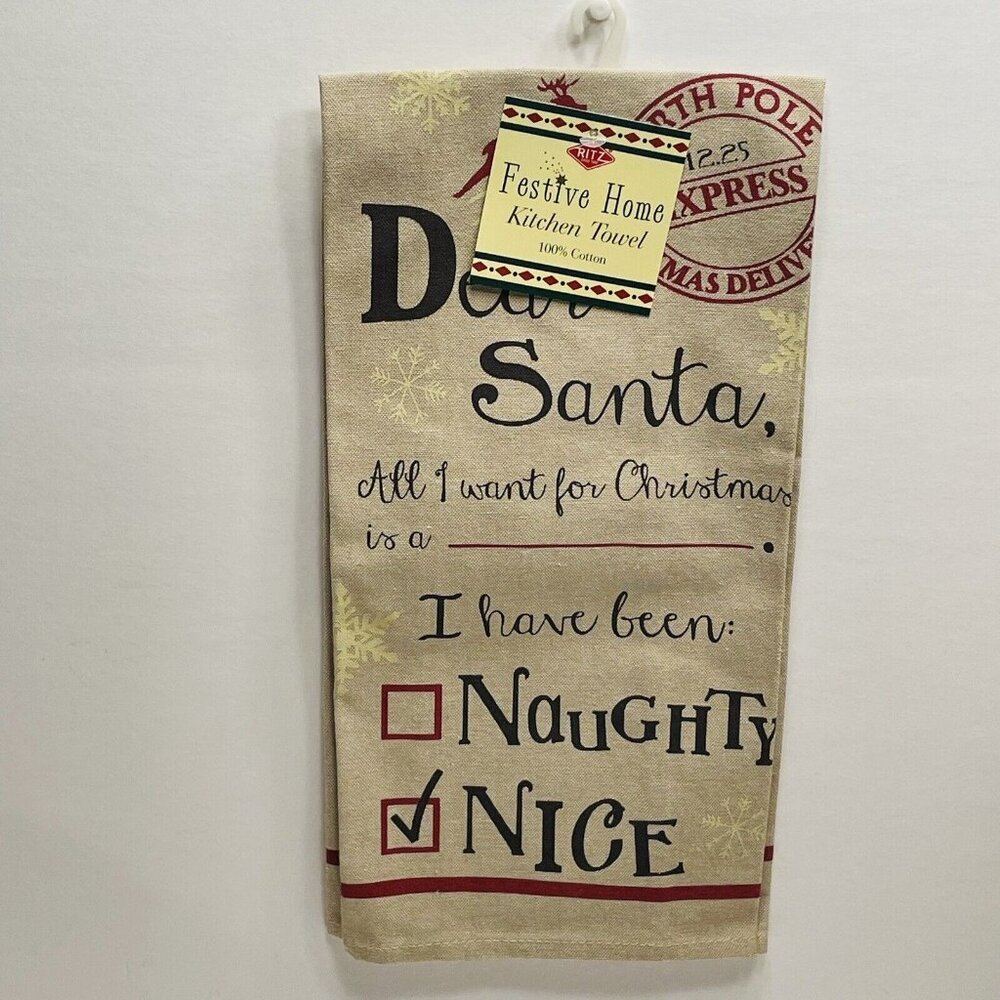 RTH POLE
12.25
XPRESS
MAS DELIVE
RITZ
Festive Home
Kitchen Towel
100% Cotton
Dear
Santa,
All I want for Christmas
is a ______.
I have been:
NAUGHTY
NICE